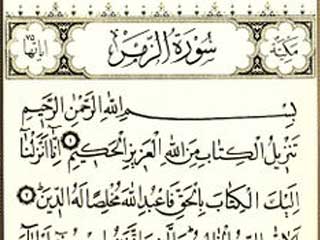 مكية
سورة الزمر
اياتها ٧٥
بسم الله الرحمن الرحيم
تنزيل الكتاب من الله العزيز الحكيم ١ انا انزلنا
اليك الكتاب بالحق فاعبد الله مخلصا له الدين ٢